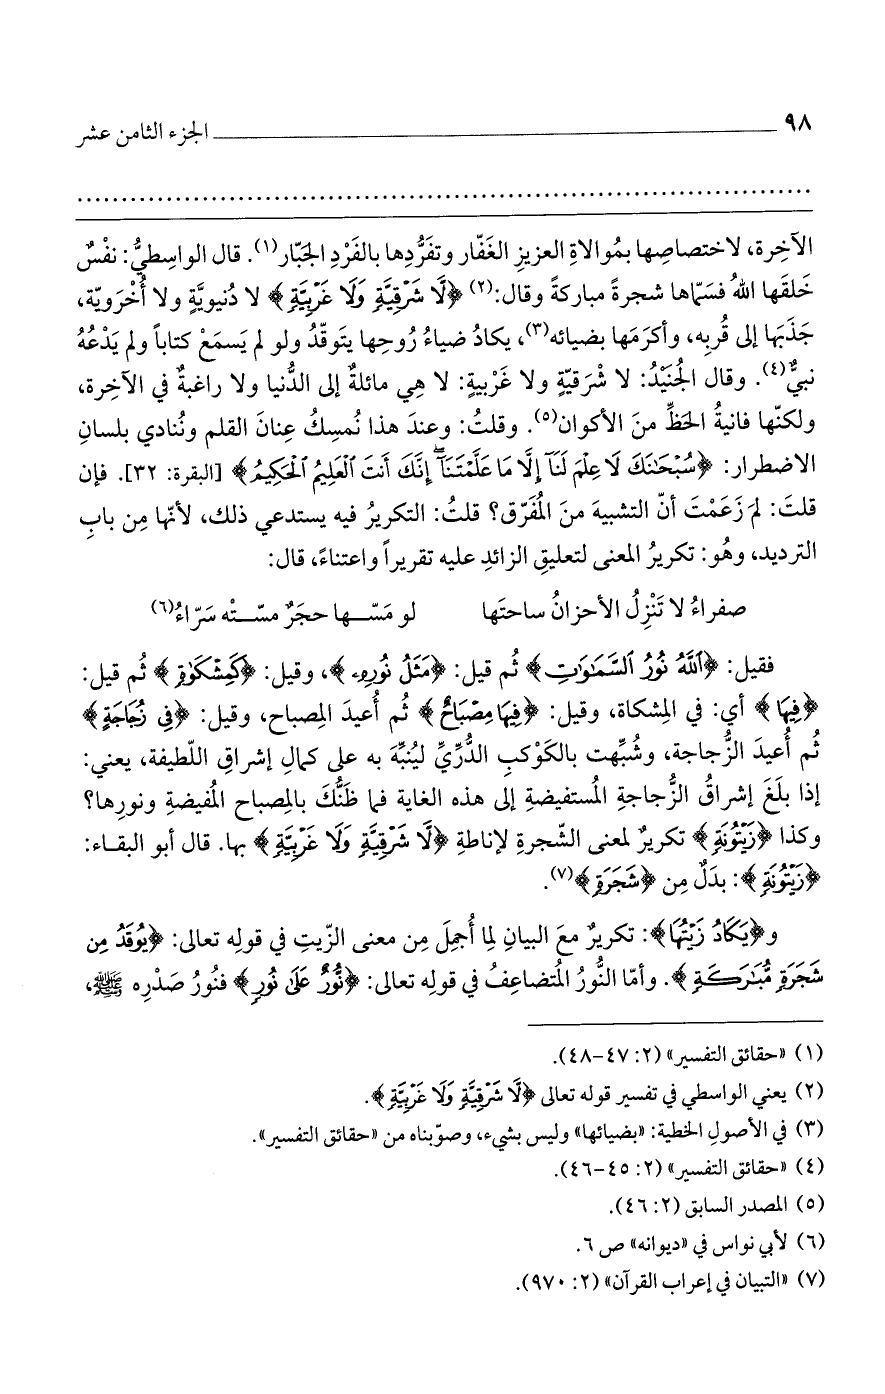 ٩٨ الجزء الثامن عشر
الآخِرة، لاختصاصِها بمُوالاةِ العزيزِ الغَفّار وتفَرُّدِها بالفَرْدِ الجَبّار(١). قال الواسِطيُّ: نفْسٌ
خَلقَها اللهُ فسَمّاها شجرةً مباركةً وقال:(٢) ﴿لَّا شَرْقِيَّةٍ وَلَا غَرْبِيَّةٍ﴾ لا دُنيويَّةٍ ولا أُخْرَويّة،
جَذَبَها إلى قُربِه، وأكرَمَها بضيائه(٣)، يكادُ ضياءُ رُوحِها يتَوقّدُ ولو لم يَسمَعْ كتاباً ولم يَدْعُهُ
نبيٌّ(٤). وقال الجُنَيْدُ: لا شَرَقيّةٍ ولا غَرْبيةٍ: لا هِي مائلةٌ إلى الدُّنيا ولا راغبةٌ في الآخِرة،
ولكنّها فانيةُ الحَظِّ منَ الأكوان(٥). وقلتُ: وعندَ هذا نُمسِكُ عِنانَ القلم ونُنادي بلسانِ
الاضطرار: ﴿سُبْحَٰنَكَ لَا عِلْمَ لَنَآ إِلَّا مَا عَلَّمْتَنَآ ۖ إِنَّكَ أَنتَ ٱلْعَلِيمُ ٱلْحَكِيمُ﴾ [البقرة: ٣٢]. فإن
قلتَ: لِمَ زَعَمْتَ أنّ التشبيهَ منَ المُفَرّق؟ قلتُ: التكريرُ فيه يستدعي ذلك، لأنّها مِن بابِ
الترديد، وهُو: تكريرُ المعنى لتعليقِ الزائدِ عليه تقريراً واعتناءً، قال:
صفراءُ لا تَنْزِلُ الأحزانُ ساحتَها لو مَسّـها حجَرٌ مسّـتْه سَرّاءُ(٦)
فقيل: ﴿ٱللَّهُ نُورُ ٱلسَّمَٰوَٰتِ﴾ ثُم قيل: ﴿مَثَلُ نُورِهِۦ﴾، وقيل: ﴿كَمِشْكَوٰةٍ﴾ ثُم قيل:
﴿فِيهَا﴾ أي: في المِشكاة، وقيل: ﴿فِيهَا مِصْبَاحٌ﴾ ثُم أُعيدَ المِصباح، وقيل: ﴿فِى زُجَاجَةٍ﴾
ثُم أُعيدَ الزُّجاجة، وشُبِّهت بالكَوْكبِ الدُّرِّيِّ ليُنبِّهَ به على كمالِ إشراقِ اللّطيفة، يعني:
إذا بلَغَ إشراقُ الزُّجاجةِ المُستفيضةِ إلى هذه الغاية فما ظَنُّكَ بالمِصباح المُفيضةِ ونورِها؟
وكذا ﴿زَيْتُونَةٍ﴾ تكريرٌ لمعنى الشّجرةِ لإناطةِ ﴿لَّا شَرْقِيَّةٍ وَلَا غَرْبِيَّةٍ﴾ بها. قال أبو البقـاء:
﴿زَيْتُونَةٍ﴾: بدَلٌ مِن ﴿شَجَرَةٍ﴾(٧).
و﴿يَكَادُ زَيْتُهَا﴾: تكريرٌ معَ البيانِ لِما أُجمِلَ مِن معنى الزّيتِ في قولِه تعالى: ﴿يُوقَدُ مِن
شَجَرَةٍ مُّبَٰرَكَةٍ﴾. وأمّا النُّورُ المُتضاعِفُ في قولِه تعالى: ﴿نُّورٌ عَلَىٰ نُورٍ﴾ فنُورُ صَدْرِه ﷺ،
(١) «حقائق التفسير» (٢: ٤٧-٤٨).
(٢) يعني الواسطي في تفسير قوله تعالى ﴿لَّا شَرْقِيَّةٍ وَلَا غَرْبِيَّةٍ﴾.
(٣) في الأصولِ الخطية: «بضيائها» وليس بشيء، وصوّبناه من «حقائق التفسير».
(٤) «حقائق التفسير» (٢: ٤٥-٤٦).
(٥) المصدر السابق (٢: ٤٦).
(٦) لأبي نواس في «ديوانه» ص ٦.
(٧) «التبيان في إعراب القرآن» (٢: ٩٧٠).